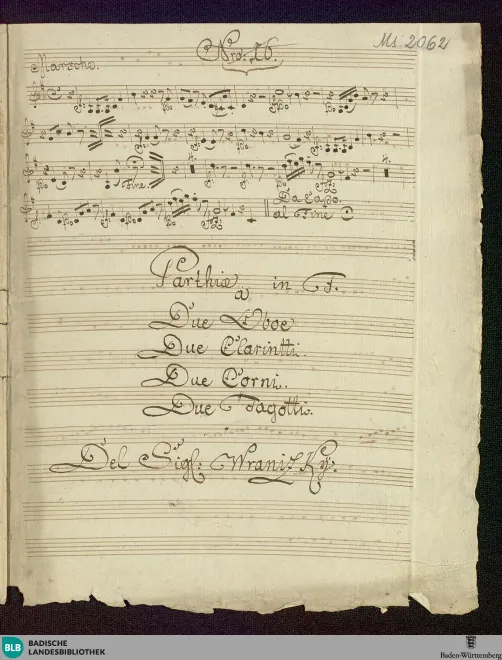 Nro: 16.
Ms. 2062
Marsche.
Fine.
Da Capo.
al Fine
Parthia in F.
a
Due Oboe
Due Clarinetti.
Due Corni.
Due Fagotti.
Del Sigl: Wranizky.
BLB
BADISCHE
LANDESBIBLIOTHEK
Baden-Württemberg